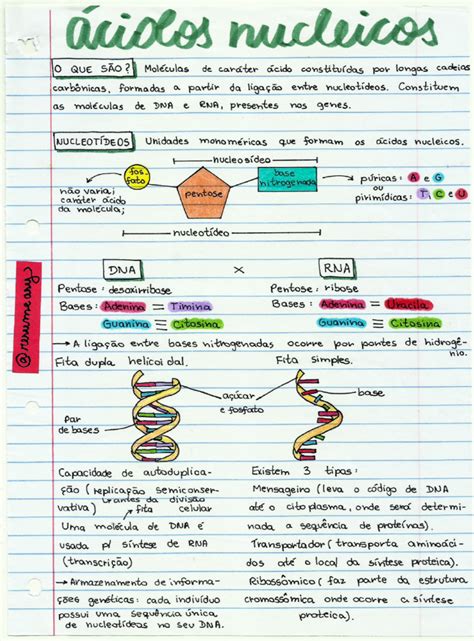 ácidos nucleicos
O QUE SÃO? Moléculas de caráter ácido constituídas por longas cadeias
carbônicas, formadas a partir da ligação entre nucleotídeos. Constituem
as moléculas de DNA e RNA, presentes nos genes.
NUCLEOTÍDEOS Unidades monoméricas que formam os ácidos nucleicos.
nucleosídeo
fos
fato
pentose
base
nitrogenada
não varia;
caráter ácido
da molécula;
púricas: A e G
ou
pirimídicas: T, C e U
nucleotídeo
DNA x RNA
Pentose: desoxirribose
Pentose: ribose
Bases: Adenina = Timina
Bases: Adenina = Uracila
Guanina ≡ Citosina
Guanina ≡ Citosina
→ A ligação entre bases nitrogenadas ocorre por pontes de hidrogê
nio.
@resumeany
Fita dupla helicoidal.
Fita simples.
açúcar
e fosfato
base
Par
de bases
Capacidade de autoduplica-
ção (replicação semiconser-
vativa) antes da divisão
celular
↓ fita
Uma molécula de DNA é
usada p/ síntese de RNA
(transcrição)
→ Armazenamento de informa-
ções genéticas: cada indivíduo
possui uma sequência única
de nucleotídeos no seu DNA.
Existem 3 tipos:
Mensageiro (leva o código de DNA
até o citoplasma, onde será determi-
nada a sequência de proteínas).
Transportador (transporta aminoáci-
dos até o local da síntese proteica).
Ribossômico (faz parte da estrutura
cromossômica onde ocorre a síntese
proteica).